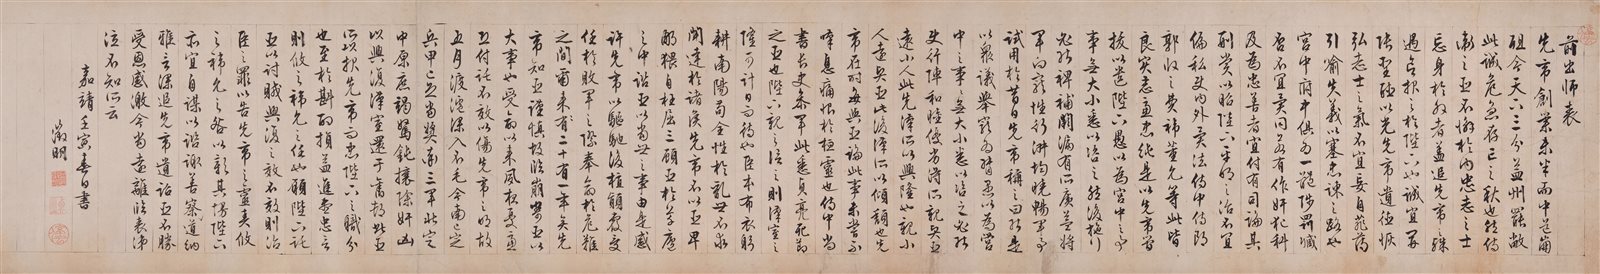 前出師表
先帝創業未半而中道崩
殂今天下三分益州罷敝
此誠危急存亡之秋也然侍
衛之臣不懈於內忠志之士
忘身於外者蓋追先帝之殊
遇欲報之於陛下也誠宜開
張聖聽以光先帝遺德恢
弘志士之氣不宜妄自菲薄
引喻失義以塞忠諫之路也
宮中府中俱為一體陟罰臧
否不宜異同若有作奸犯科
及為忠善者宜付有司論其
刑賞以昭陛下平明之治不宜
偏私使內外異法侍中侍郎
郭攸之費禕董允等此皆
良實志慮忠純是以先帝簡
拔以遺陛下愚以為宮中之事
事無大小悉以咨之然後施行
必能裨補闕漏有所廣益將
軍向寵性行淑均曉暢軍事
試用於昔日先帝稱之曰能是
以眾議舉寵為督愚以為營
中之事事無大小悉以咨之必能
使行陣和睦優劣得所親賢臣
遠小人此先漢所以興隆也親小
人遠賢臣此後漢所以傾頹也先
帝在時每與臣論此事未嘗不
嘆息痛恨於桓靈也侍中尚
書長史參軍此悉貞亮死節
之臣也陛下親之信之則漢室之
隆可計日而待也臣本布衣躬
耕南陽苟全性命於亂世不求
聞達於諸侯先帝不以臣卑
鄙猥自枉屈三顧臣於草廬
之中諮臣以當世之事由是感
許先帝以驅馳後值傾覆受
任於敗軍之際奉命於危難
之間爾來有二十有一年矣先
帝知臣謹慎故臨崩寄臣以
大事也受命以來夙夜憂慮
恐付託不效以傷先帝之明故
五月渡瀘深入不毛今南方已定
兵甲已足當獎率三軍北定
中原庶竭駑鈍攘除奸凶
以興復漢室還于舊都此臣
所以報先帝而忠陛下之職分
也至於斟酌損益進盡忠言
則攸之禕允之任也願陛下託
臣以討賊興復之效不效則治
臣之罪以告先帝之靈責攸
之禕允之咎以彰其慢陛下
亦宜自謀以諮諏善道察納
雅言深追先帝遺詔臣不勝
受恩感激今當遠離臨表涕
泣不知所云
嘉靖壬寅春日書
徵明